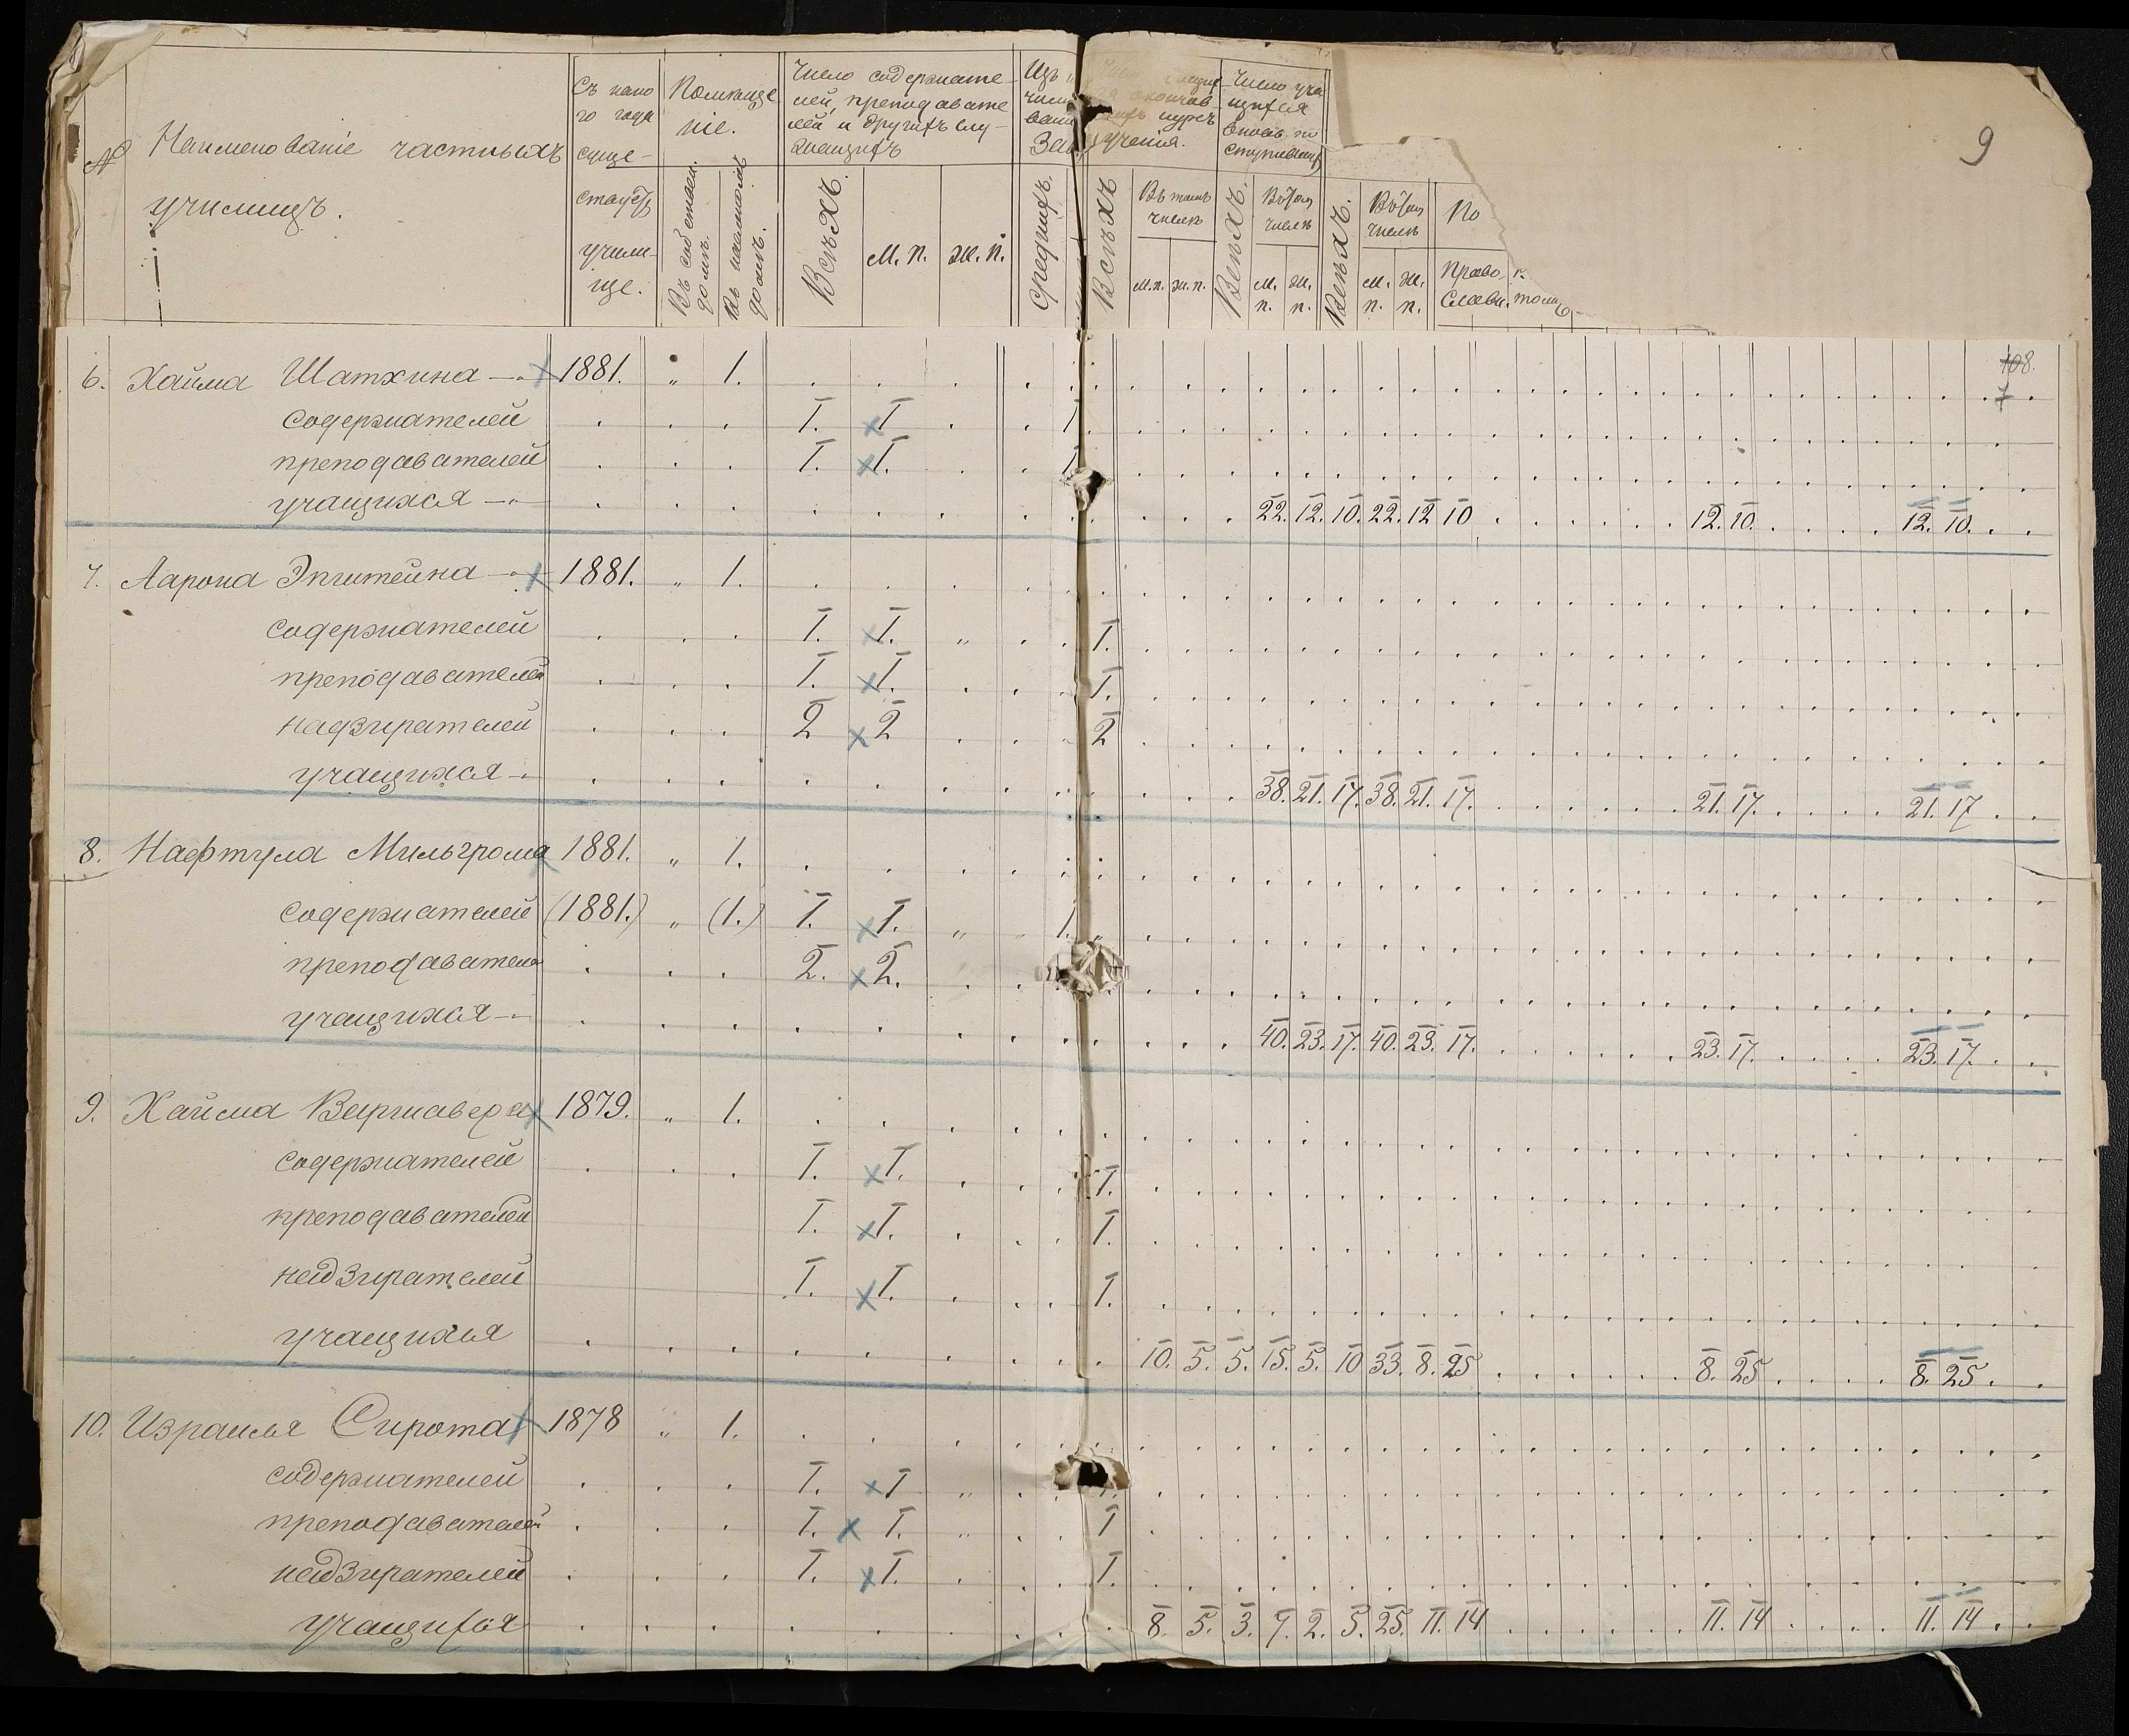 № Наименованіе частныхъ училищъ.
Съ како го года суще- ствуетъ учили- ще.
Помѣще ніе.
Въ собствен. домѣ.
Въ наемномъ домѣ.
Число содержате- лей, преподавате лей и другихъ слу- жащихъ
Всѣхъ. м. п. ж. п.
Изъ
Среднихъ.
курсъ ученія.
Всѣхъ Въ томъ числѣ м. п. ж. п.
Число уча щихся вновь по ступившихъ
Всѣхъ. Въ томъ числѣ м. п. ж. п.
Всѣхъ. Въ томъ числѣ м. п. ж. п.
По
Право слави.
9
108.
7
6. Хайма Шатхина 1881. „ 1.
содержателей 1. 1 1
преподавателей 1. 1. 1
учащихся 22. 12. 10. 22. 12 10 12. 10. 12. 10.
7. Аарона Эпштейна 1881. „ 1.
содержателей 1. 1. „ 1.
преподавателей 1. 1. 1.
надзирателей 2 2 2
учащихся 38. 21. 17. 38. 21. 17. 21. 17. 21. 17
8. Нафтула Мильгрома 1881. „ 1.
содержателей (1881.) „ (1.) 1. 1. „ „ 1. „
преподавателей 2. 2.
учащихся 40. 23. 17. 40. 23. 17. 23. 17. 23. 17.
9. Хайма 1879. „ 1.
содержателей 1. 1. 1.
преподавателей 1. 1. 1.
надзирателей 1. 1. 1.
учащихся 10. 5. 5. 15. 5. 10 33. 8. 25 8. 25 8. 25.
10. Израиля Сирота 1878 „ 1.
содержателей 1. 1 „ 1.
преподавателей 1. 1. „ 1
надзирателей 1. 1. 1.
учащихся 8. 5. 3. 7. 2. 5. 25. 11. 14 11. 14 11. 14.